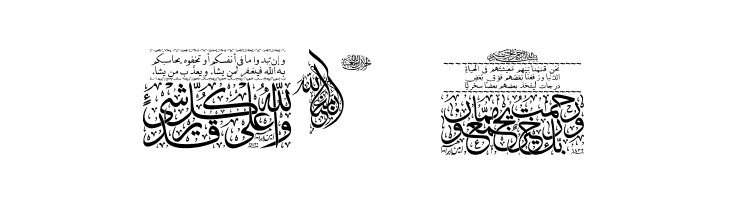 وإن تبدوا ما في أنفسكم أو تخفوه يحاسبكم
به الله فيغفر لمن يشاء ويعذب من يشاء
والله على كل شيء قدير
نحن قسمنا بينهم معيشتهم في الحياة
الدنيا ورفعنا بعضهم فوق بعض
درجات ليتخذ بعضهم بعضا سخريا
ورحمت ربك خير مما يجمعون